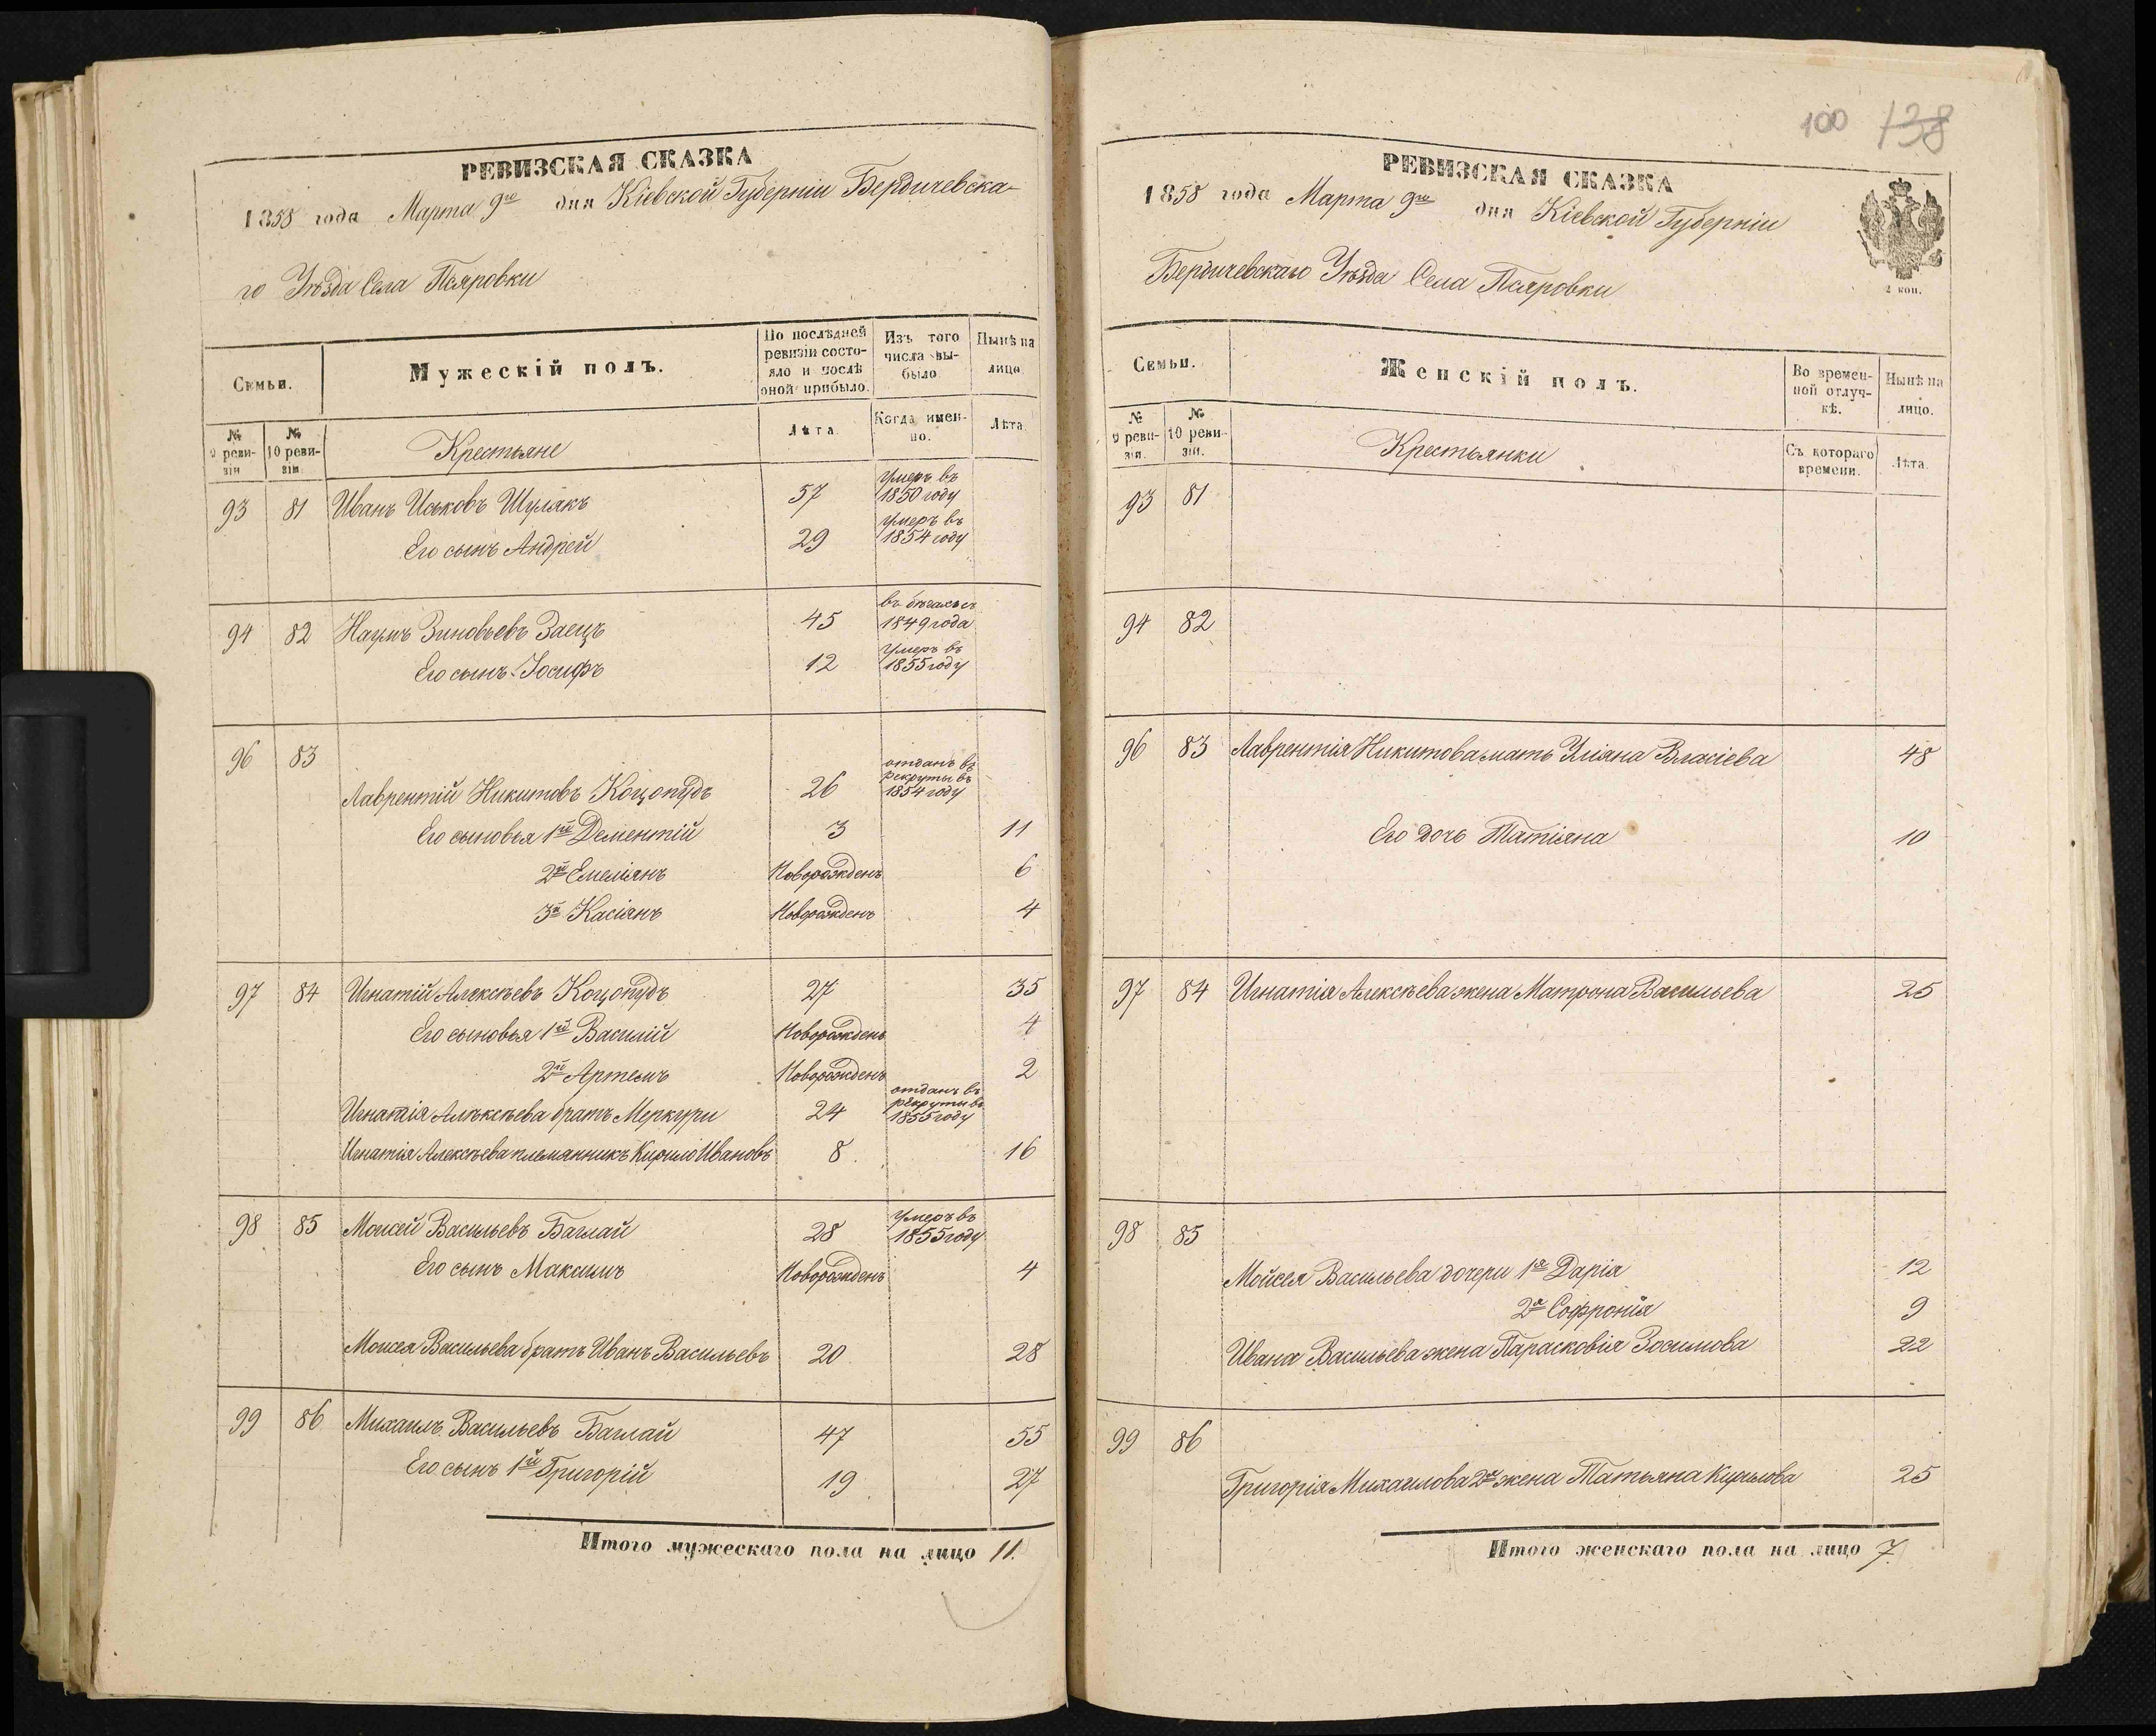 РЕВИЗСКАЯ СКАЗКА
1858 года Марта 9го дня Кіевской Губерніи Бердичевска-
го Уѣзда Села Псяровки
Семьи.
Мужескій полъ.
По послѣдней ревизіи состо-
яло и послѣ оной прибыло.
Изъ того числа вы-
было
Нынѣ на лицо.
№ 9 реви-
зіи
№ 10 реви-
зіи.
Крестьяне
Лѣта.
Когда имен-
но.
Лѣта
93 81 Иванъ Иськовъ Шулякъ 57 умеръ въ 1850 году
Его сынъ Андрей 29 умеръ въ 1854 году
94 82 Наумъ Зиновьевъ Заецъ 45 въ бѣгахъ съ 1849 года
Его сынъ Іосифъ 12 умеръ въ 1855 году
96 83
Лаврентій Никитовъ Коцопудъ 26 отданъ въ рекруты въ 1854 году
Его сыновья 1й Дементій 3 11
2й Емеліянъ Новорожденъ 6
3й Касіянъ Новорожденъ 4
97 84 Игнатій Алексѣевъ Коцопудъ 27 35
Его сыновья 1й Василій Новорожденъ 4
2й Артемъ Новорожденъ 2
Игнатія Алексѣева братъ Меркури 24 отданъ въ рекруты въ 1855 году
Игнатія Алексѣева племянникъ Кирило Ивановъ 8 16
98 85 Моисей Васильевъ Баглай 28 Умеръ въ 1855 году
Его сынъ Максимъ Новорожденъ 4
Моисея Васильева братъ Иванъ Васильевъ 20 28
99 86 Михаилъ Васильевъ Баглай 47 55
Его сынъ 1й Григорій 19 27
Итого мужескаго пола на лицо 11.
100 138
РЕВИЗСКАЯ СКАЗКА
1858 года Марта 9го дня Кіевской Губерніи
Бердичевскаго Уѣзда Села Псяровки
2 коп.
Семьи.
Женскій полъ.
Во времен-
ной отлуч-
кѣ.
Нынѣ на лицо.
№ 9 реви-
зія.
№ 10 реви-
зіи.
Крестьянки
Съ котораго времени.
Лѣта.
93 81
94 82
96 83 Лаврентія Никитова мать Уліяна Власіева 48
Его дочь Татіяна 10
97 84 Игнатія Алексѣева жена Матрона Васильева 25
98 85
Мойсея Васильева дочери 1я Дарія 12
2я Софронія 9
Ивана Васильева жена Парасковія Зосимова 22
99 86
Григорія Михаилова 2я жена Татьяна Кирилова 25
Итого женскаго пола на лицо 7.